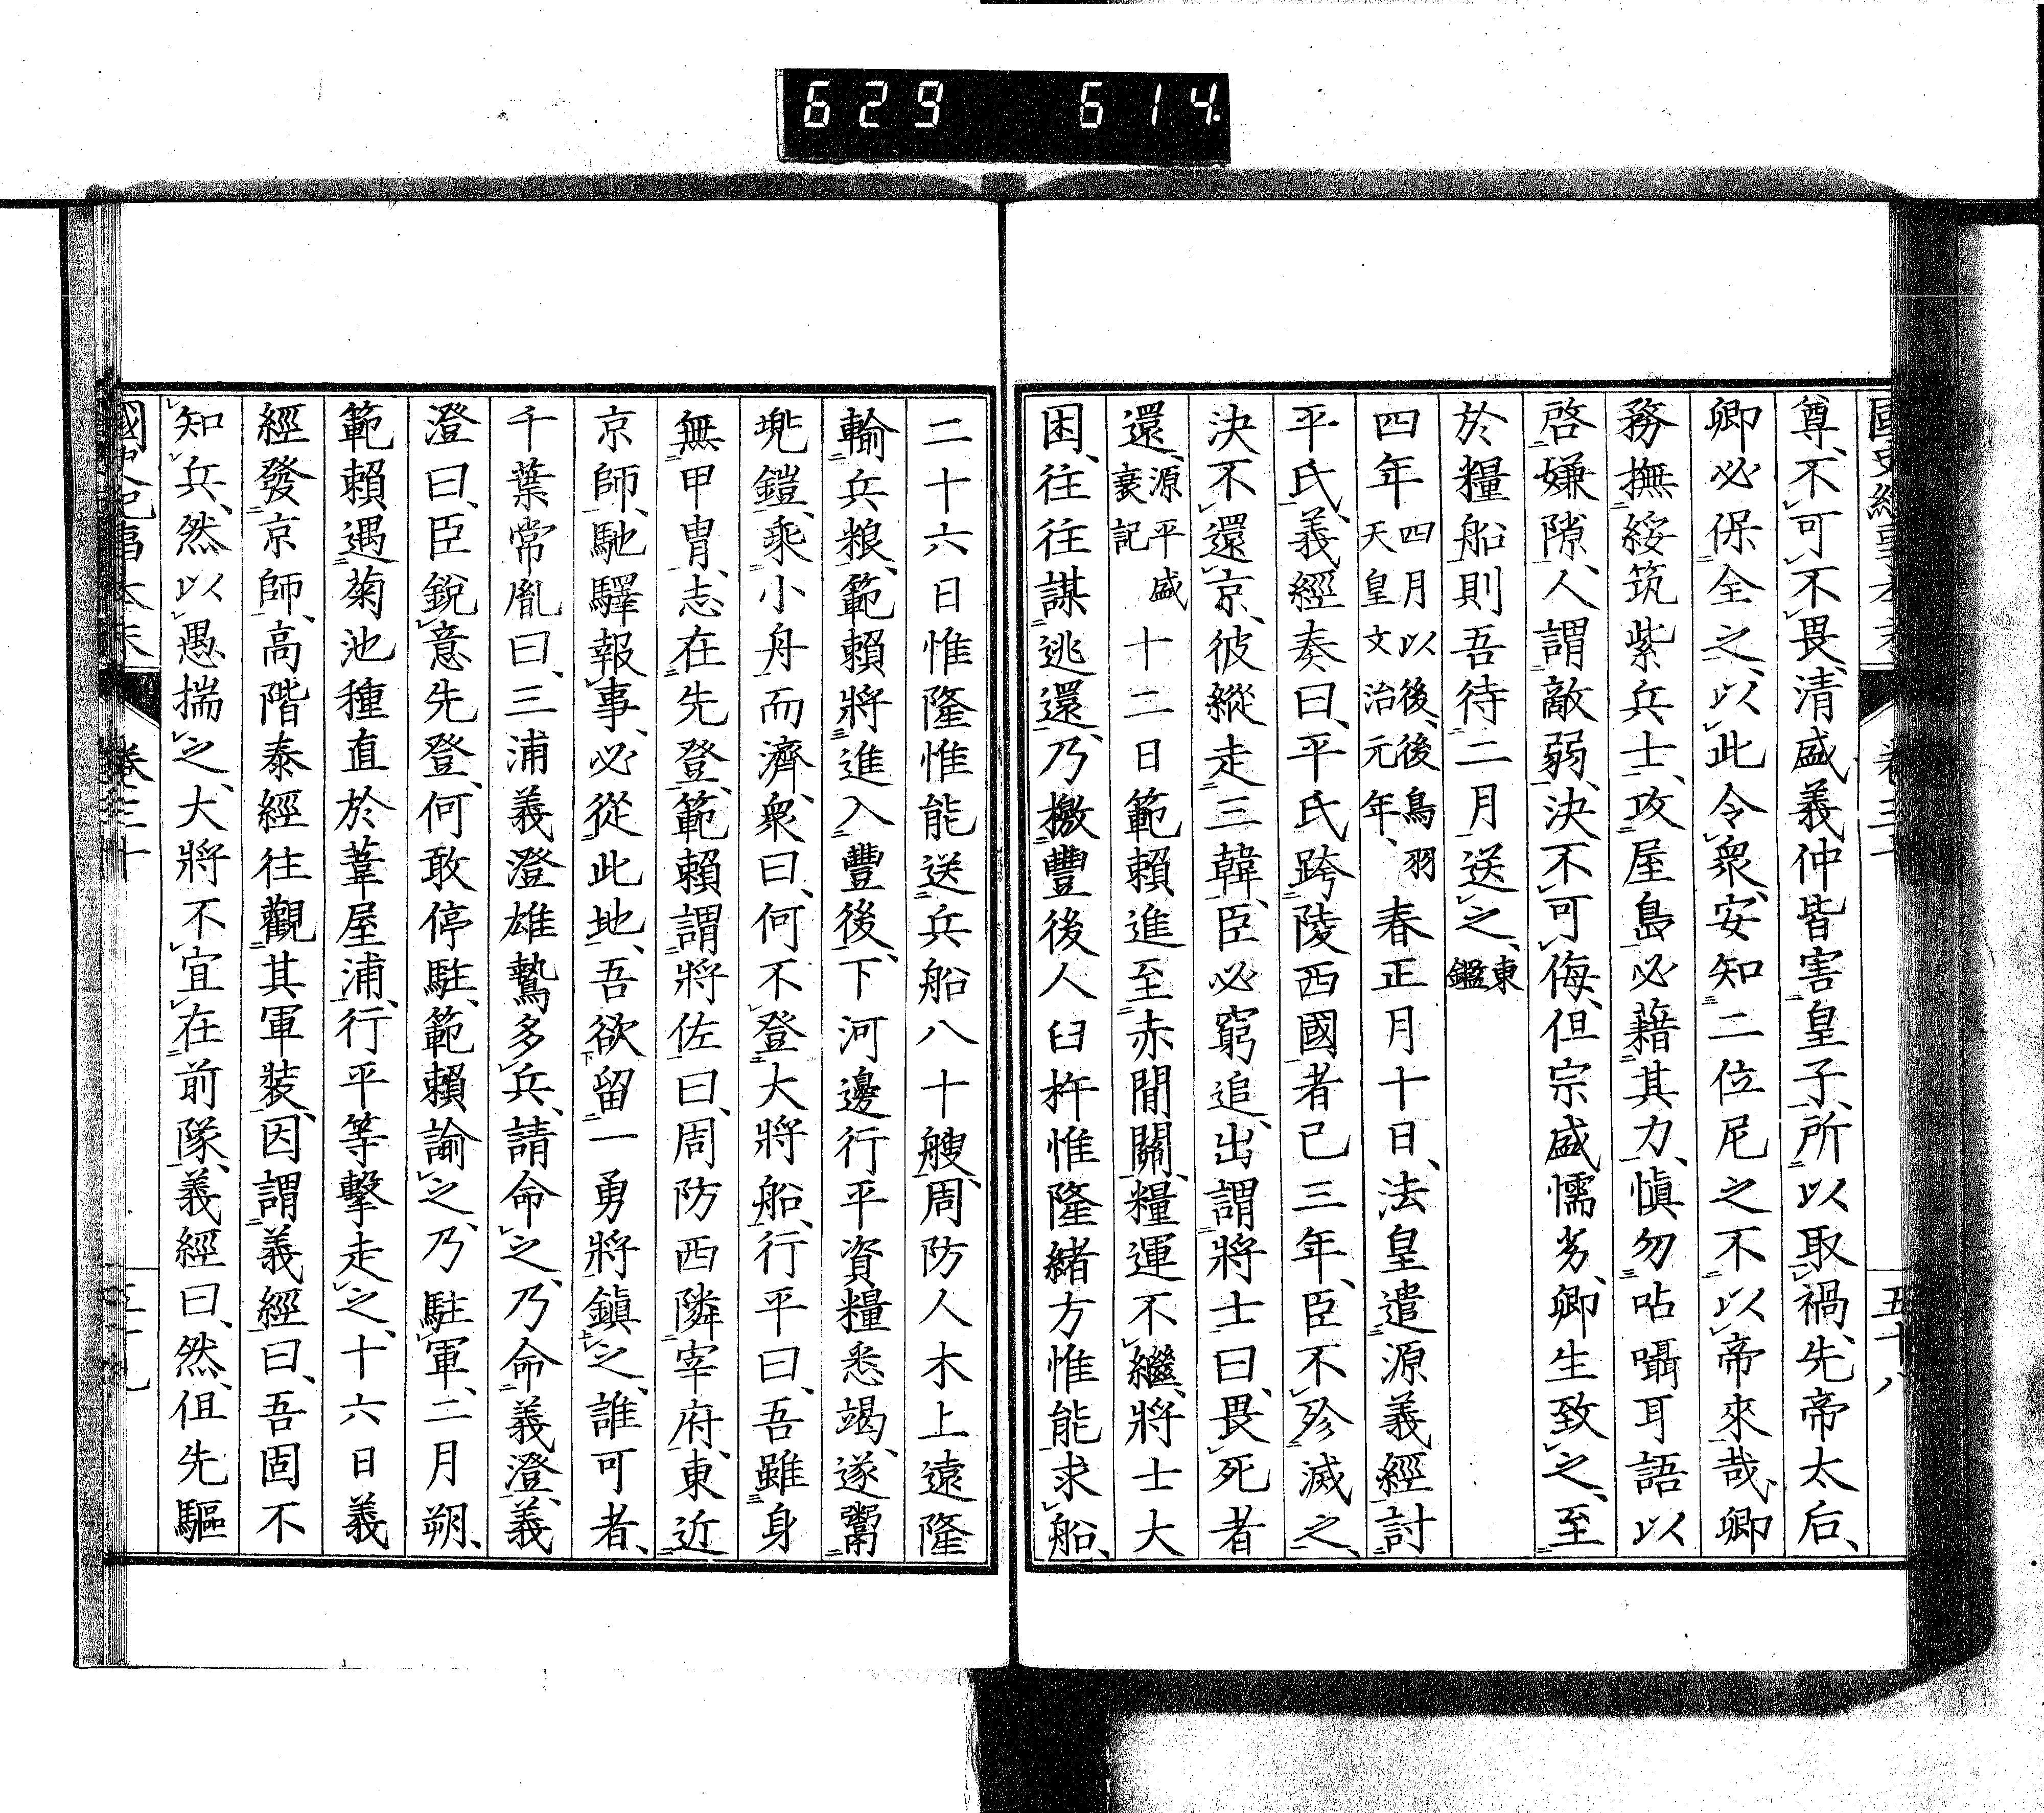 629 614.
尊、不可不畏、清盛義仲皆害皇子、所以取禍、先帝太后、
卿必保全之、以此令衆安、知二位尼之不以帝來哉、卿
務撫綏筑紫兵士、攻屋島必藉其力、愼勿呫囁耳語以
啓嫌隙、人謂敵弱、決不可侮、但宗盛懦劣、卿生致之、至
於糧船則吾待二月送之、東鑑
四年四月以後、後鳥羽天皇文治元年、春正月十日、法皇遣源義經討
平氏、義經奏曰、平氏跨陵西國者已三年、臣不殄滅之、
決不還京、彼縱走三韓、臣必窮追、出謂將士曰、畏死者
還、源平盛衰記十二日範賴進至赤間關、糧運不繼、將士大
困、往往謀逃還、乃檄豐後人臼杵惟隆緒方惟能求船、
二十六日惟隆惟能送兵船八十艘、周防人木上遠隆
輸兵粮、範賴將進入豐後、下河邊行平資糧悉竭、遂鬻
兠鎧、乘小舟而濟、衆曰、何不登大將船、行平曰、吾雖身
無甲胄、志在先登、範賴謂將佐曰、周防西隣宰府、東近
京師、馳驛報事、必從此地、吾欲留一勇將鎮之、誰可者、
千葉常胤曰、三浦義澄雄鷙多兵、請命之、乃命義澄、義
澄曰、臣銳意先登、何敢停駐、範賴諭之、乃駐軍、二月朔、
範賴遇菊池種直於葦屋浦、行平等擊走之、十六日義
經發京師、高階泰經往觀其軍裝、因謂義經曰、吾固不
知兵、然以愚揣之、大將不宜在前隊、義經曰、然、伹先驅
國史紀事本末 卷三十